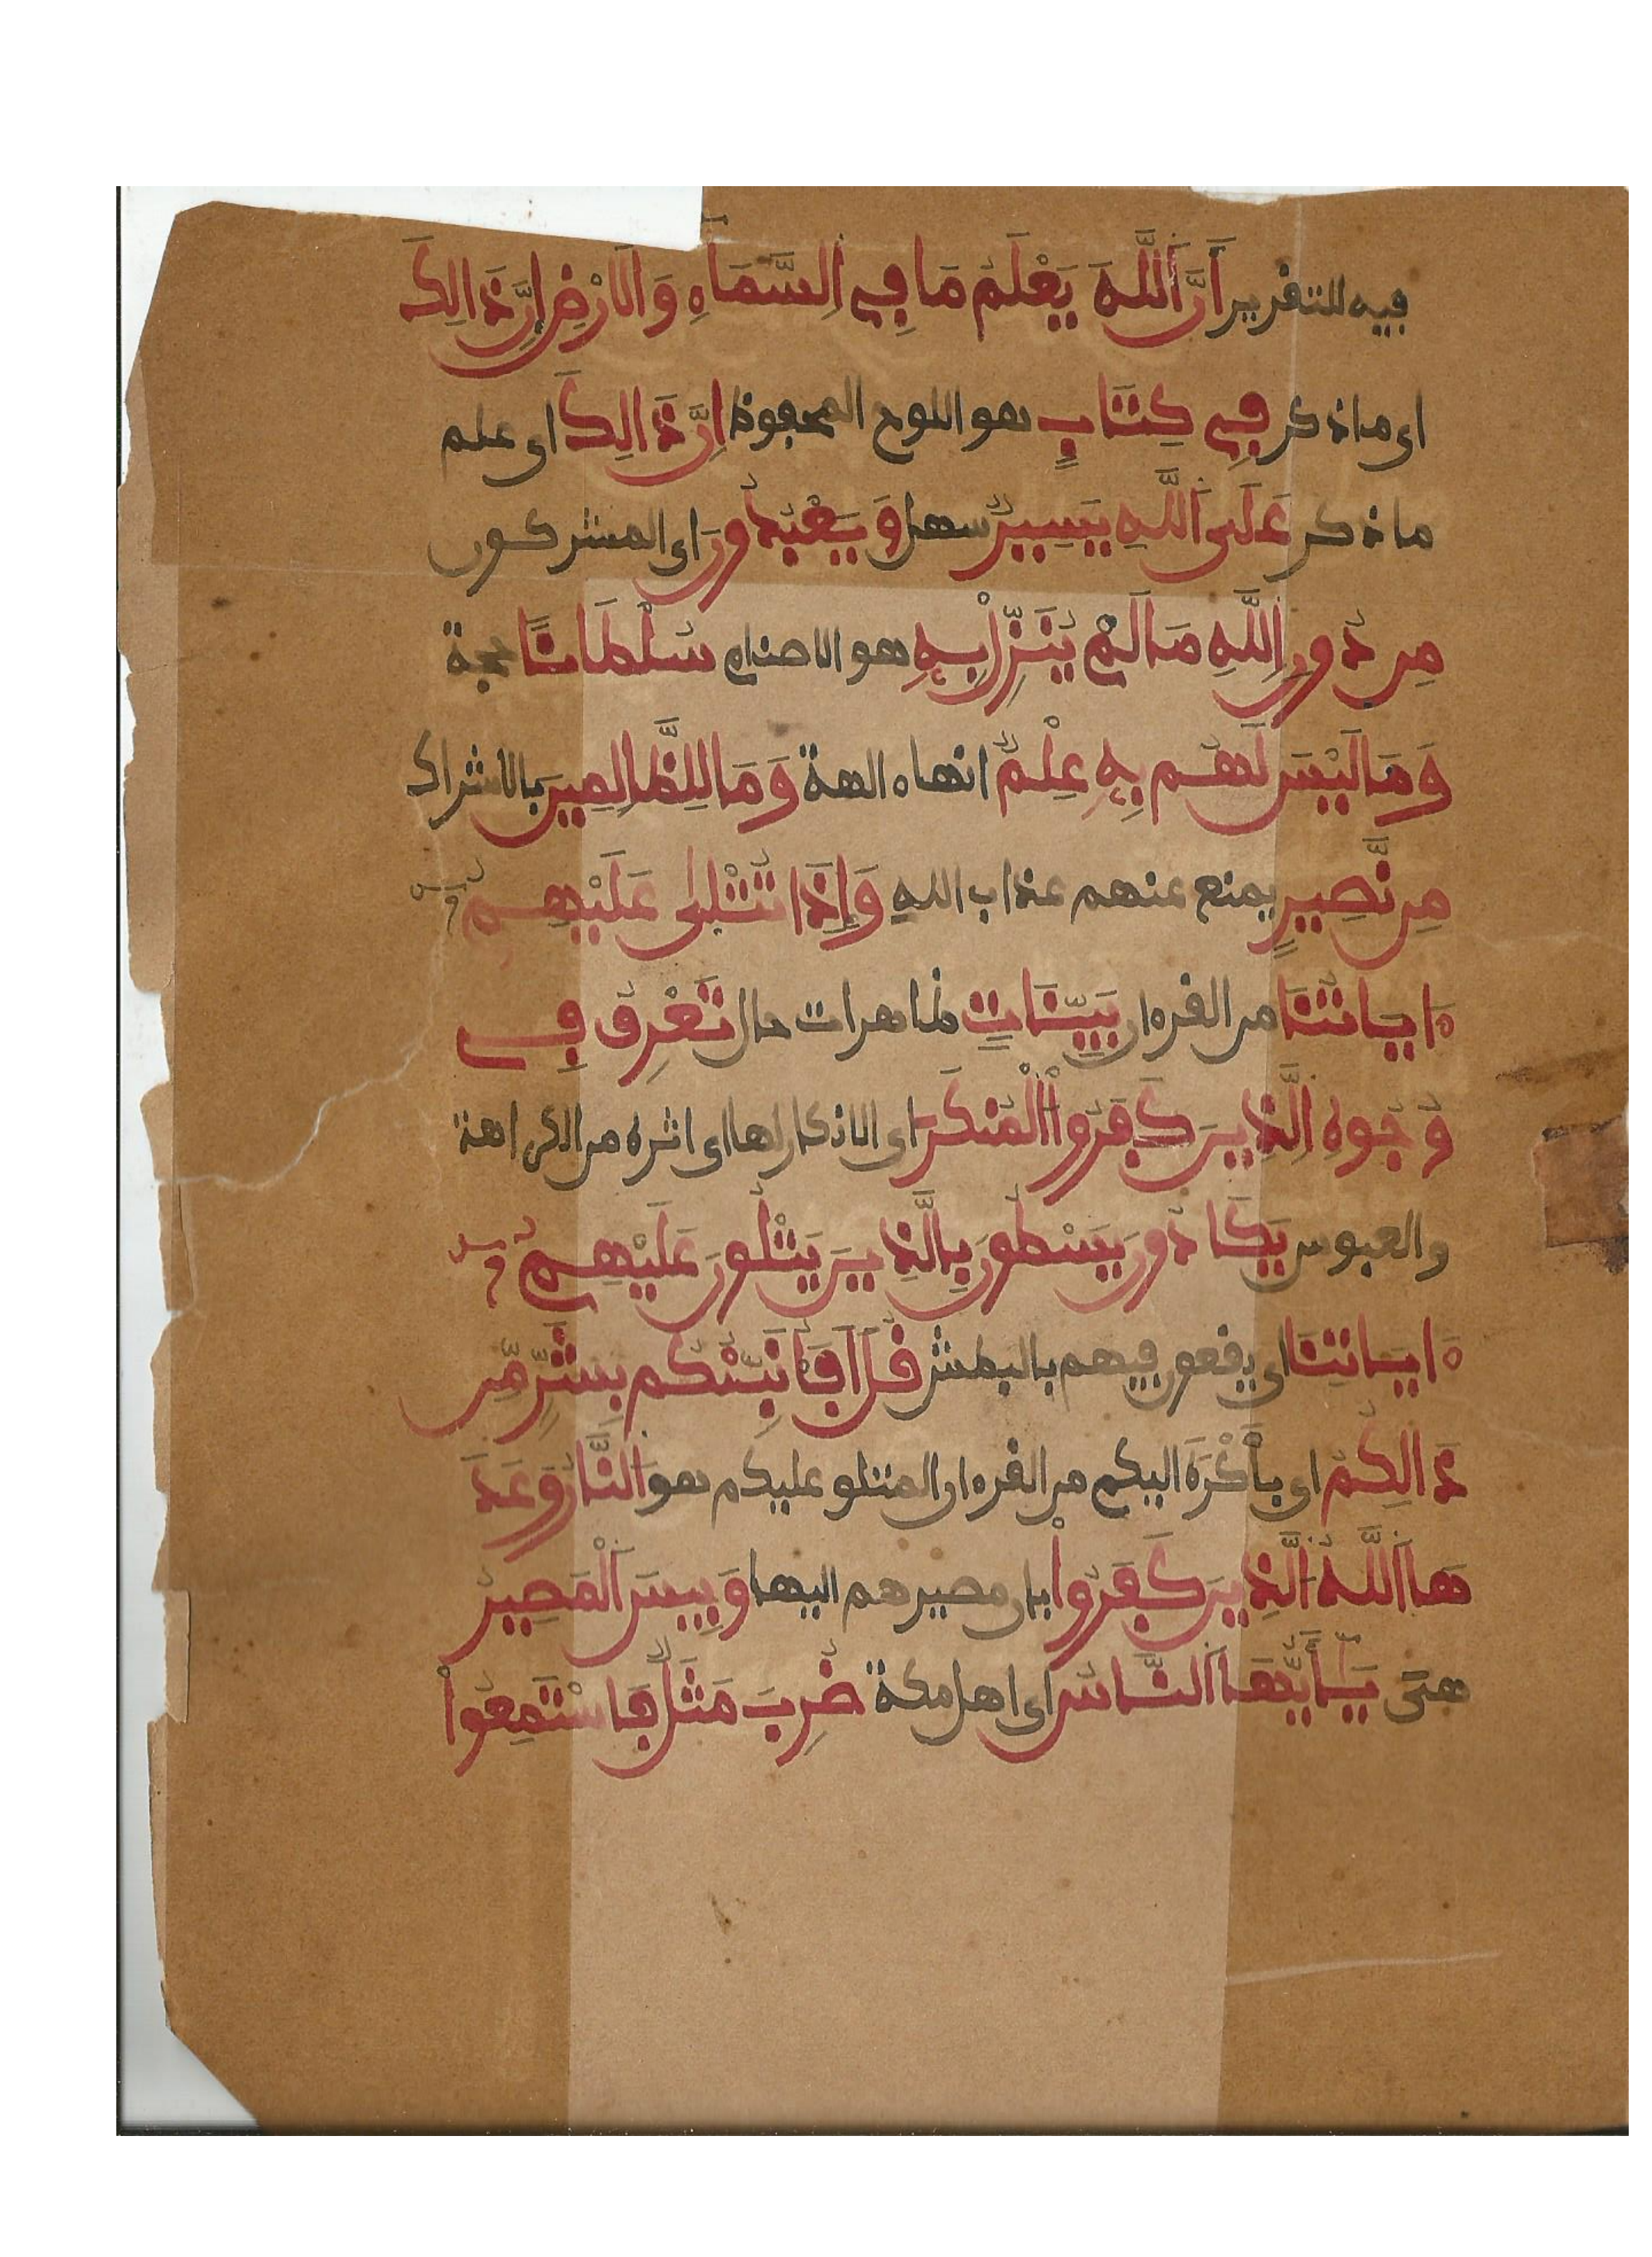 فيه للتقرير أَنَّ اَللَّهَ يَعْلَمُ مَا فِي اِلسَّمَآءِ وَالَارْضِ إِنَّ ذَالِكَ
اى ما ذكر فِي كِتَابٍ هو اللوح المحفوظ اِنَّ ذَالِكَ اى علم
ما ذكر عَلَى اَللَّهِ يَسِيرٌ سهل وَيَعْبُدُونَ اى المشركون
مِن دُونِ اِللَّهِ مَا لَمْ يُنَزِّلْ بِهِ هو الاصنام سُلْطَانًا حجة
وَمَا لَيْسَ لَهُم بِهِ عِلْمٌ انهاه الهة وَمَا لِلظَّالِمِينَ بالاشراك
مِن نَّصِيرٍ يمنع عنهم عذاب اللهِ وَإِذَا تُتْلَىٰ عَلَيْهِمُۥ
ءايَاتُنَا من القرءان بَيِّنَاتٍ ظاهرات حال تَعْرِفُ فِي
وُجُوهِ اِلَّذِينَ كَفَرُواْ اَلْمُنكَرَ اى الانكار لها اى اثره من الكراهة
والعبوس يَكَادُونَ يَسْطُونَ بِالَّذِينَ يَتْلُونَ عَلَيْهِمُۥ
ءايَاتِنَا اى يقعون فيهم بالبطش قُلَ اَفَأُنَبِّئُكُم بِشَرٍّ مِّن
ذَالِكُمُ اى بأكْرَهَ اليكم من القرءان المتلو عليكم هو اَلنَّارُ وَعَدَ
هَا اَللَّهُ اُلَّذِينَ كَفَرُواْ بان مصيرهم اليها وَبِيسَ اَلْمَصِيرُ
هتى يَٰٓأَيُّهَا اَلنَّاسُ اى اهل مكة ضُرِبَ مَثَلٌ فَاسْتَمِعُواْ